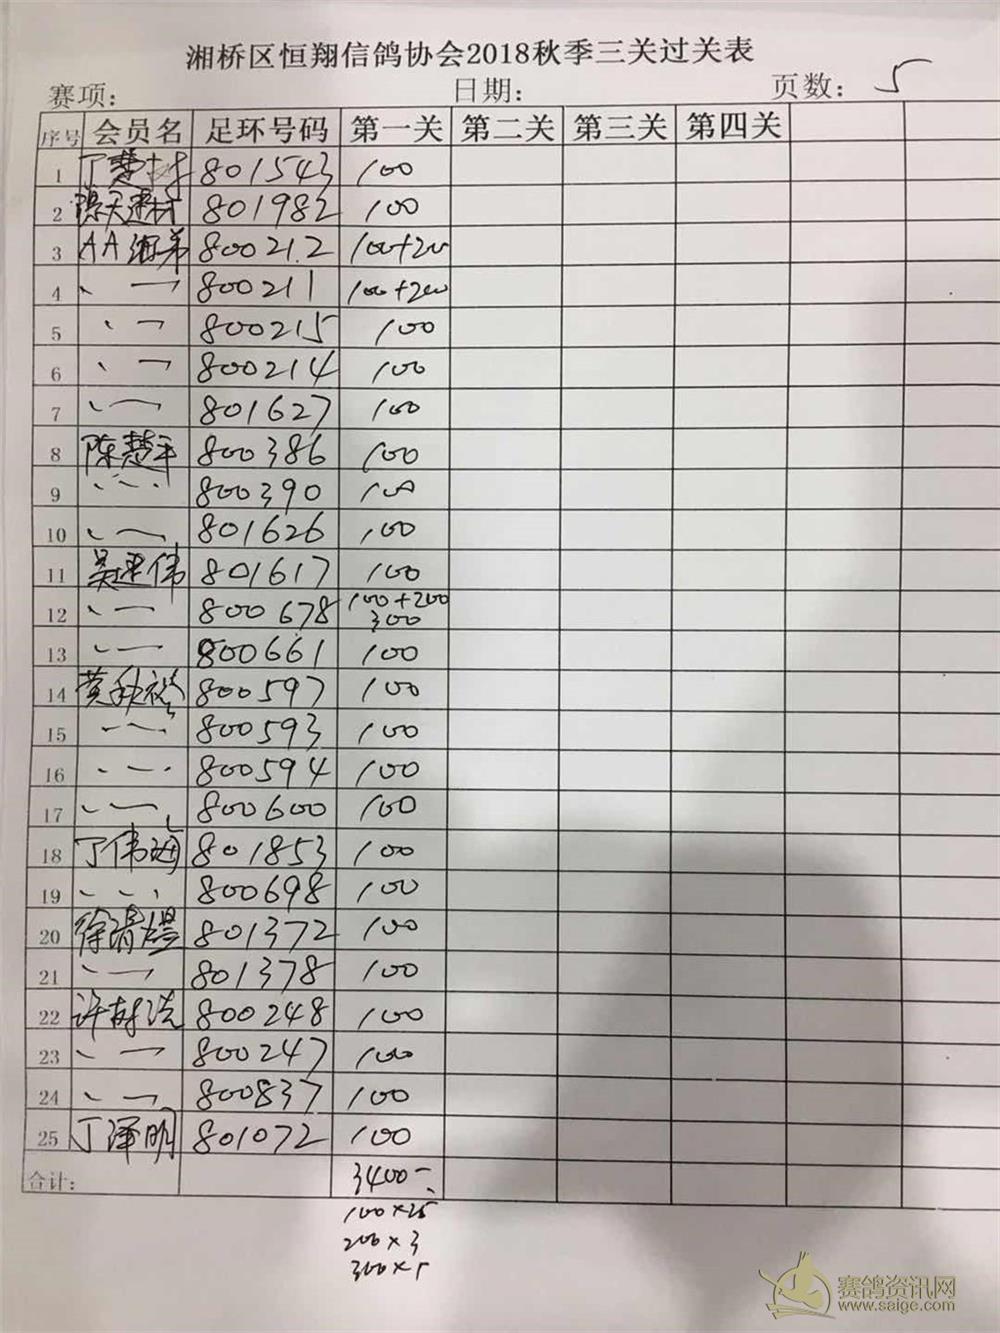 湘桥区恒翔信鸽协会2018秋季三关过关表
赛项： 日期： 页数：5
序号 会员名 足环号码 第一关 第二关 第三关 第四关
1 丁楚 801543 100
2 801982 100
3 AA 弟 800212 100+200
4 〃 800211 100+200
5 〃 800215 100
6 〃 800214 100
7 〃 801627 100
8 陈楚平 800386 100
9 〃 800390 100
10 〃 801626 100
11 吴建伟 801617 100
12 〃 800678 100+200 300
13 〃 800661 100
14 黄秋 800597 100
15 〃 800593 100
16 〃 800594 100
17 〃 800600 100
18 丁伟海 801853 100
19 〃 800698 100
20 徐清煜 801372 100
21 〃 801378 100
22 许树浩 800248 100
23 〃 800247 100
24 〃 800837 100
25 丁泽明 801072 100
合计： 3400
100×25
200×3
300×1
赛鸽资讯网
www.saige.com